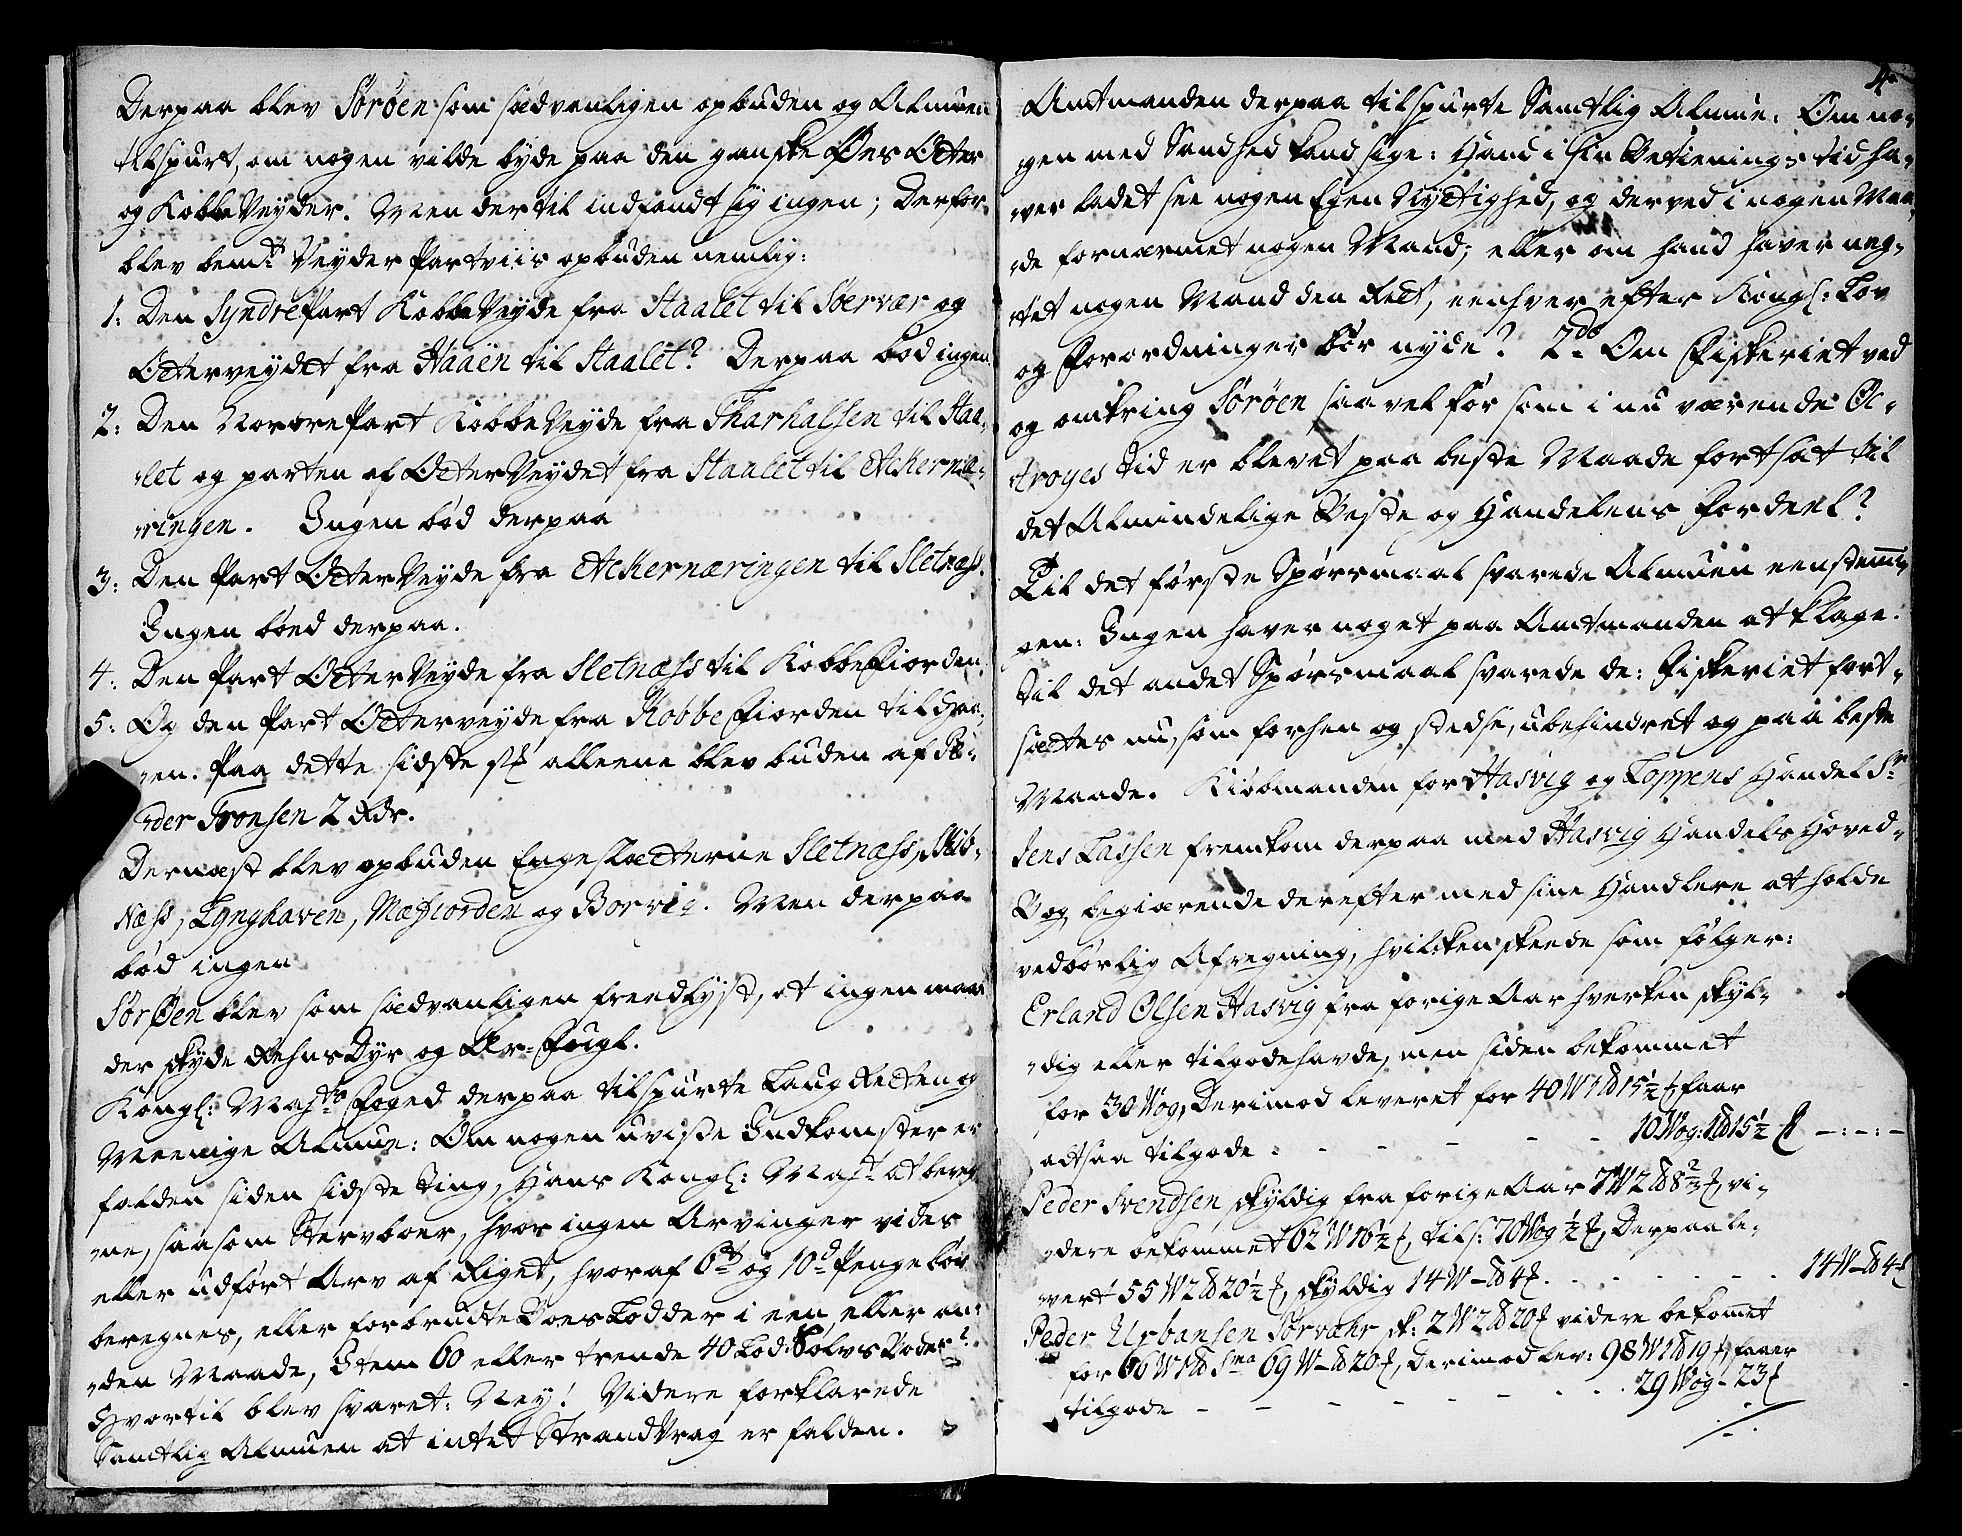 Derpaa blev Sørøen som sædvanligen opbuden og Almuen
tilspurt, om nogen vilde byde paa den ganske Øes Otter
og KobbeVeyder. Men dertil indfandt sig ingen; Derfor
blev bemt. Veyder Partviis opbuden nemlig:
1: Den Syndre Part KobbeVeyde fra Staalet til Søervær og
Otterveydet fra Haaen til Staalet? Derpaa bød ingen
2: Den Nordre Part KobbeVeyde fra Tharhalsen til Staa-
let og parten af OtterVeydet fra Staalet til Ackernæ-
ringen. Ingen bød derpaa
3: Den Part OtterVeyde fra Ackernæringen til Sletnæss.
Ingen bøed derpaa.
4: Den Part OtterVeyde fra Sletnæss til KobbeFiorden
5: Og den Part Otterveyde fra KobbeFiorden til Haa-
en. Paa dette sidste st alleene blev buden af Pe-
der Tronsen 2 Rdr.
Dernæst blev opbuden Engeslætterne Sletnæss,
Næss, Lynghaven, Mæfiorden og Borvig. Men derpaa
bød ingen
SørØen blev som sædvanligen freedlyst, at ingen maae
der skyde RehnsDyr og Ær-Fugl.
Kongl: Majts Foged derpaa tilspurte LaugRetten og
Meenige Almue: Om nogen uvisse Indkomster er
falden siden sidste Ting, Hans Kongl: Majt. at bereg-
ne, saasom Stervboer, hvor ingen Arvinger vides
eller udført Arv af Riget, hvoraf 6te og 10de Penge bør
beregnes, eller forbrudte Boeslodder i een eller an-
den Maade, Item 60 eller trende 40 Lod Sølvs Bøder?
Hvortil blev svaret: Ney! Videre forklarede
Samtlig Almuen at intet StrandVrag er falden.
4
Amtmanden derpaa tilspurte Samtlig Almue: Om no-
gen med Sandhed kand sige: Hand i sin Betienings tid ha-
ver ladet see nogen Egen Nyttighed, og derved i nogen Maa-
de fornærmet nogen Mand; eller om hand haver neg-
tet nogen Mand den Ret, eenhver efter Kongl: Lov
og Forordninger bør nyde? 2do Om Fiskeriet ved
og omkring Sørøen saavel før som i nu værende Oc-
troyes tid er blevet paa beste Maade fortsat til
det Almindelige Beste og Handelens Fordeel?
Til det første Spørsmaal svarede Almuen eenstemmi-
gen: Ingen haver noget paa Amtmanden at klage.
til det andet Spørsmaal svarede de: Fiskeriet fort-
sættes nu, som forhen og stedse, ubehindret og paa beste
Maade. Kiøbmanden for Hasvig og Loppens Handel Sr
Jens Lassen fremkom derpaa med Hasvig Handels Hoved-
Bog, begiærende derefter med sine Handlere at holde
vedbørlig Afregning, hvilcken skeede som følger:
Erland Olsen Hasvig fra forige Aar hverken skyl-
dig eller tilgodehavde, men siden bekommet
for 30 Wog, Derimod leveret for 40 W 1 ℔ 15½ ₰, faar
altsaa tilgode - - - - - 10 Wog: 1 ℔ 15½ ₰ -:-:-
Peder Svendsen skyldig fra forige Aar 7 W 2 ℔ 8 2/3 ₰, vi-
dere bekommet 62 W 16½ ₰, tils: 70 Wog ½ ₰, Derpaa le-
vert 55 W 2 ℔ 20½ ₰, skyldig 14 W - ℔ 4 ₰. - - - - 14 W - ℔ 4 ₰
Peder Urbansen Sørvæhr sk: 2 W 2 ℔ 20 ₰ videre bekomet
for 66 W 1 ℔ Sma 69 W - ℔ 20 ₰, Derimod lev: 98 W 1 ℔ 19 ₰, faaer
tilgode - - - - - - 29 Wog - 23 ₰